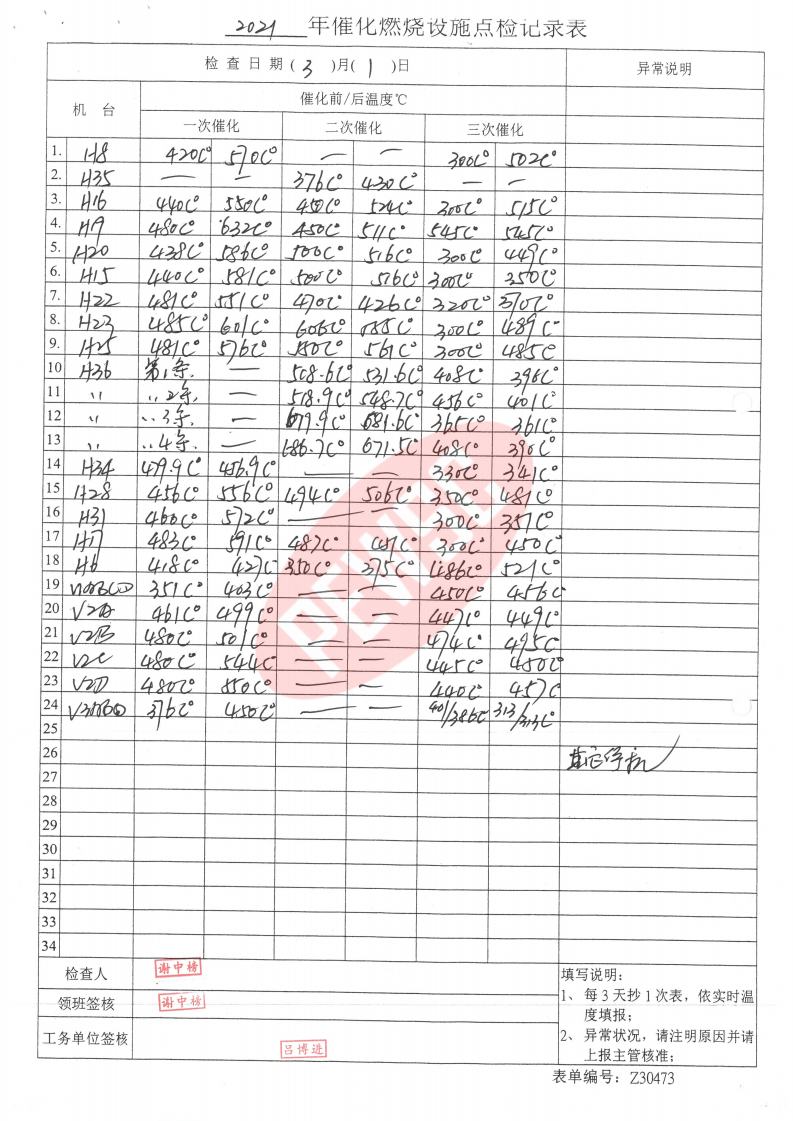 2021 年催化燃烧设施点检记录表
检查日期(3)月(1)日 异常说明
机 台 催化前/后温度℃
一次催化 二次催化 三次催化
1. H8 420C° 570C° — — 300C° 502C°
2. H35 — — 376C° 430C° — —
3. H16 440C° 550C° 450C° 524C° 300C° 515C°
4. H9 480C° 632C° 450C° 511C° 545C° 545C°
5. H20 438C° 586C° 500C° 516C° 300C° 449C°
6. H15 440C° 581C° 500C° 516C° 300C° 350C°
7. H22 481C° 551C° 470C° 426C° 320C° 370C°
8. H23 485C° 601C° 606C° 300C° 489C°
9. H25 481C° 576C° 561C° 300C° 485C
10 H36 第1条 — 508.6C° 531.6C° 408C° 396C°
11 〃 〃2条 — 518.9C° 548.7C° 456C° 401C°
12 〃 〃3条 — 679.9C° 681.6C° 365C° 361C°
13 〃 〃4条 — 686.7C° 671.5C° 408C° 390C°
14 H34 479.9C° 456.9C° — — 330C° 341C°
15 H28 456C° 556C° 494C° 506C° 350C° 481C°
16 H31 460C° 572C° — — 300C° 357C°
17 H17 483C° 591C° 487C° 300C° 450C°
18 H6 418C° 427C° 350C° 375C° 486C° 521C°
19 351C° 403C° — — 450C° 456C°
20 V2A 461C° 499C° — — 447C° 449C°
21 V2B 480C° 501C° — — 474C° 495C°
22 V2C 480C° 544C° — — 445C° 450C°
23 V2D 480C° 550C° — — 440C° 457C°
24 376C° 450C° — — 401/386C° 313/313C°
25
26 其它停机
27
28
29
30
31
32
33
34
检查人 谢中榜
领班签核 谢中榜
工务单位签核 吕博进
填写说明：
1、每3天抄1次表，依实时温
度填报；
2、异常状况，请注明原因并请
上报主管核准；
表单编号：Z30473